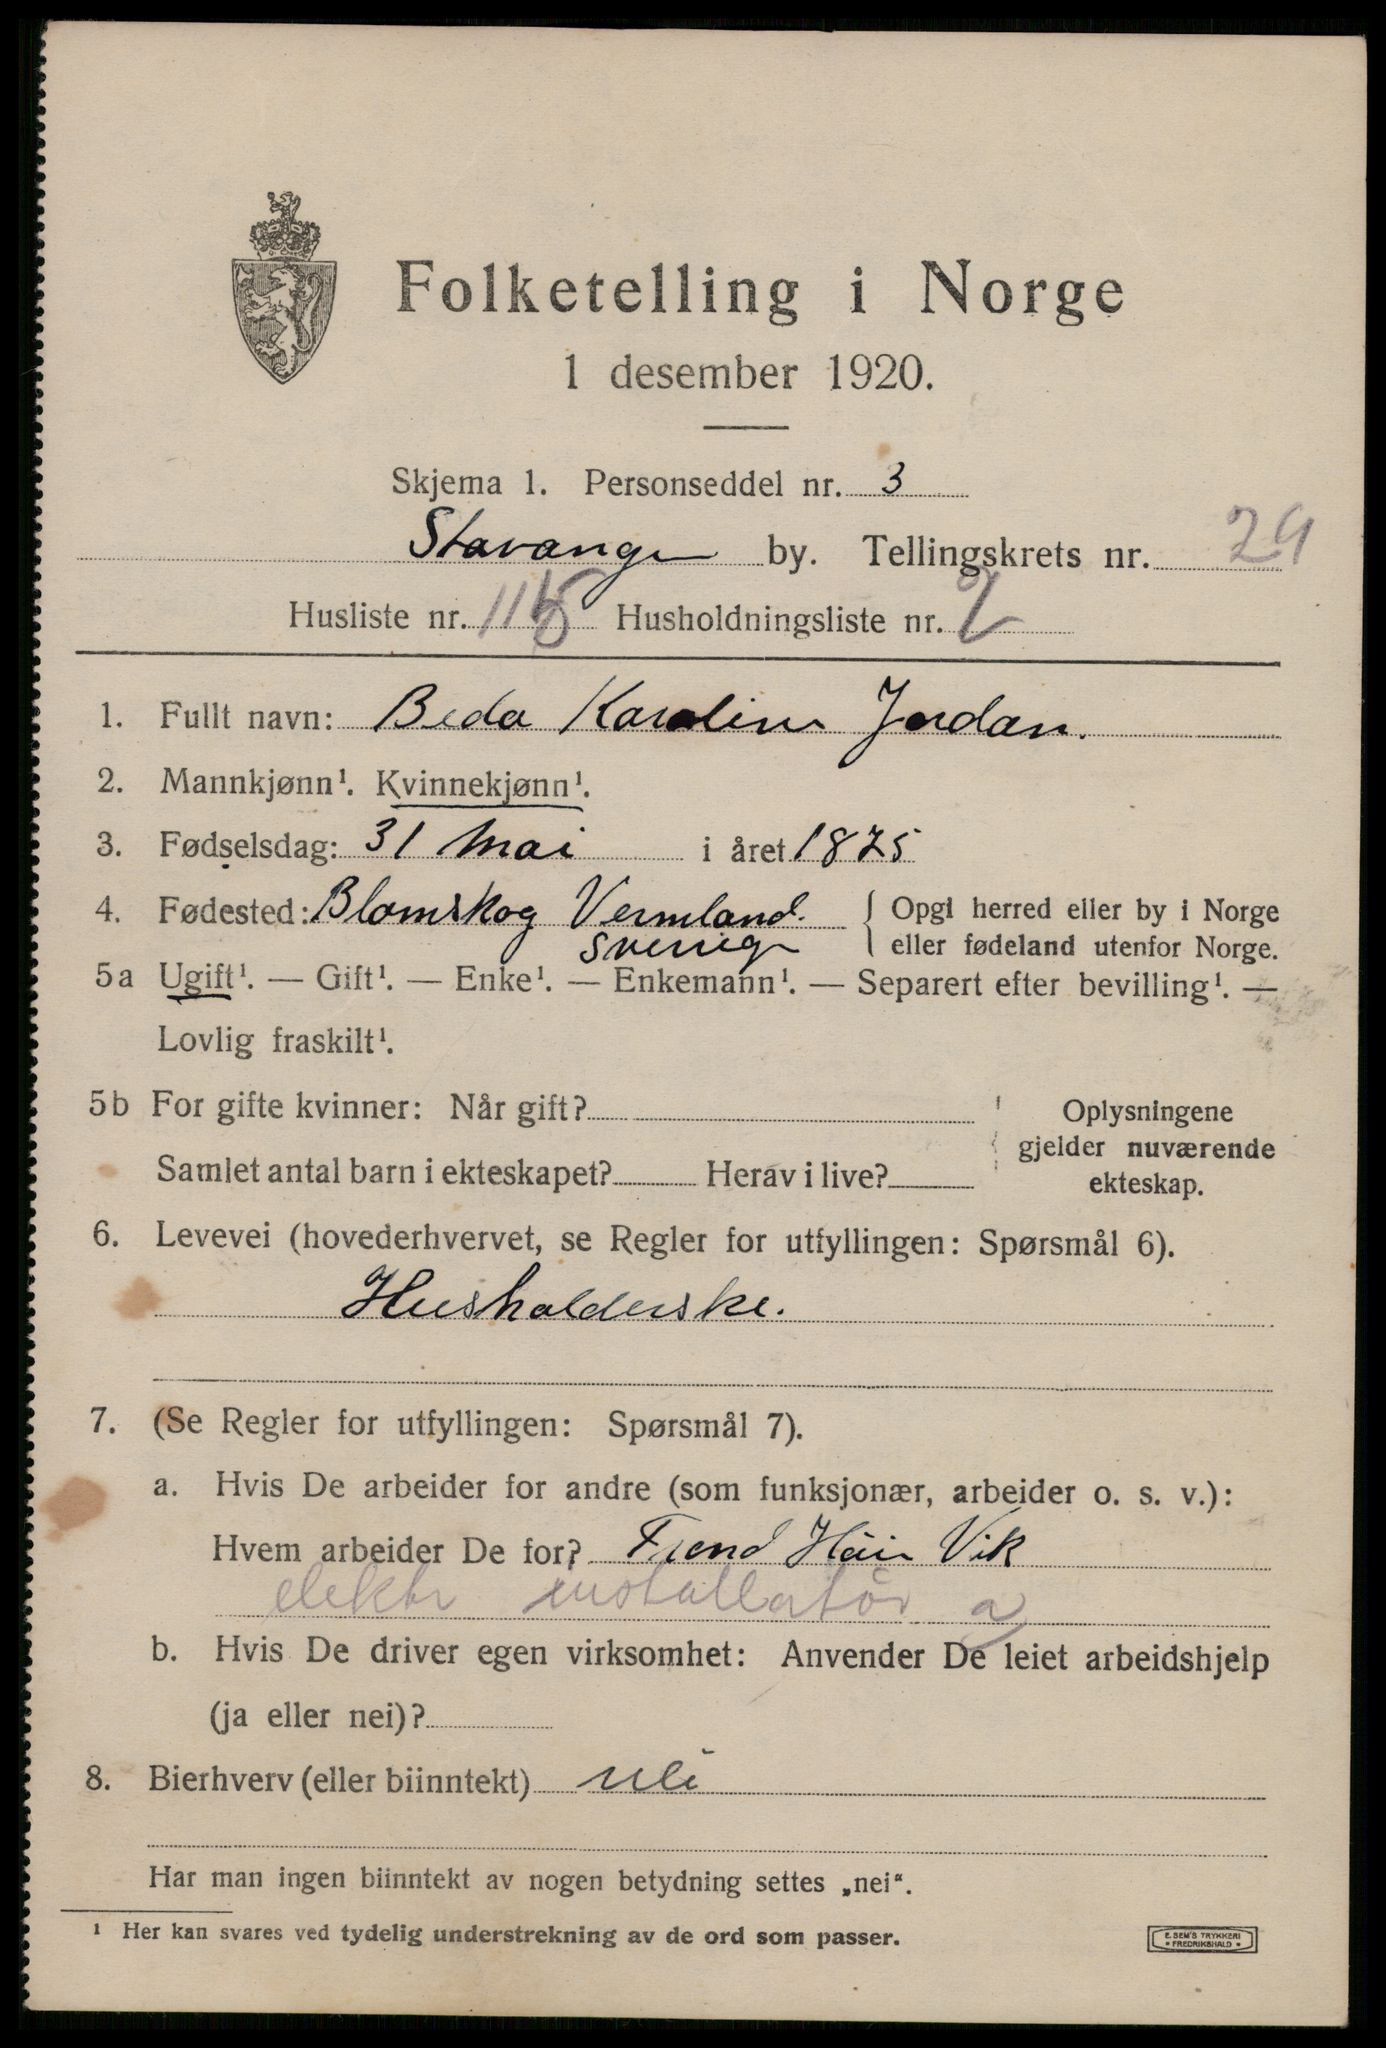 Folketelling i Norge
1 desember 1920.
Skjema 1. Personseddel nr. 3
Stavanger by. Tellingskrets nr. 29
Husliste nr. 115 Husholdningsliste nr. 2
1. Fullt navn: Beda Karoline Jordan.
2. Mannkjønn¹. Kvinnekjønn¹.
3. Fødselsdag: 31 Mai i året 1875
4. Fødested: Blomskog Vermland. { Opgi herred eller by i Norge
Sverrige eller fødeland utenfor Norge.
5a Ugift¹. — Gift¹. — Enke¹. — Enkemann¹. — Separert efter bevilling¹. —
Lovlig fraskilt¹.
5b For gifte kvinner: Når gift? Oplysningene
gjelder nuværende
Samlet antal barn i ekteskapet? Herav i live? ekteskap.
6. Levevei (hovederhvervet, se Regler for utfyllingen: Spørsmål 6).
Husholderske.
7. (Se Regler for utfyllingen: Spørsmål 7).
a. Hvis De arbeider for andre (som funksjonær, arbeider o. s. v.):
Hvem arbeider De for? Vik
elektr installatör a
b. Hvis De driver egen virksomhet: Anvender De leiet arbeidshjelp
(ja eller nei)?
8. Bierhverv (eller biinntekt) nei
Har man ingen biinntekt av nogen betydning settes „nei“.
¹ Her kan svares ved tydelig understrekning av de ord som passer.
E. SEM'S TRYKKERI
• FREDRIKSHALD •